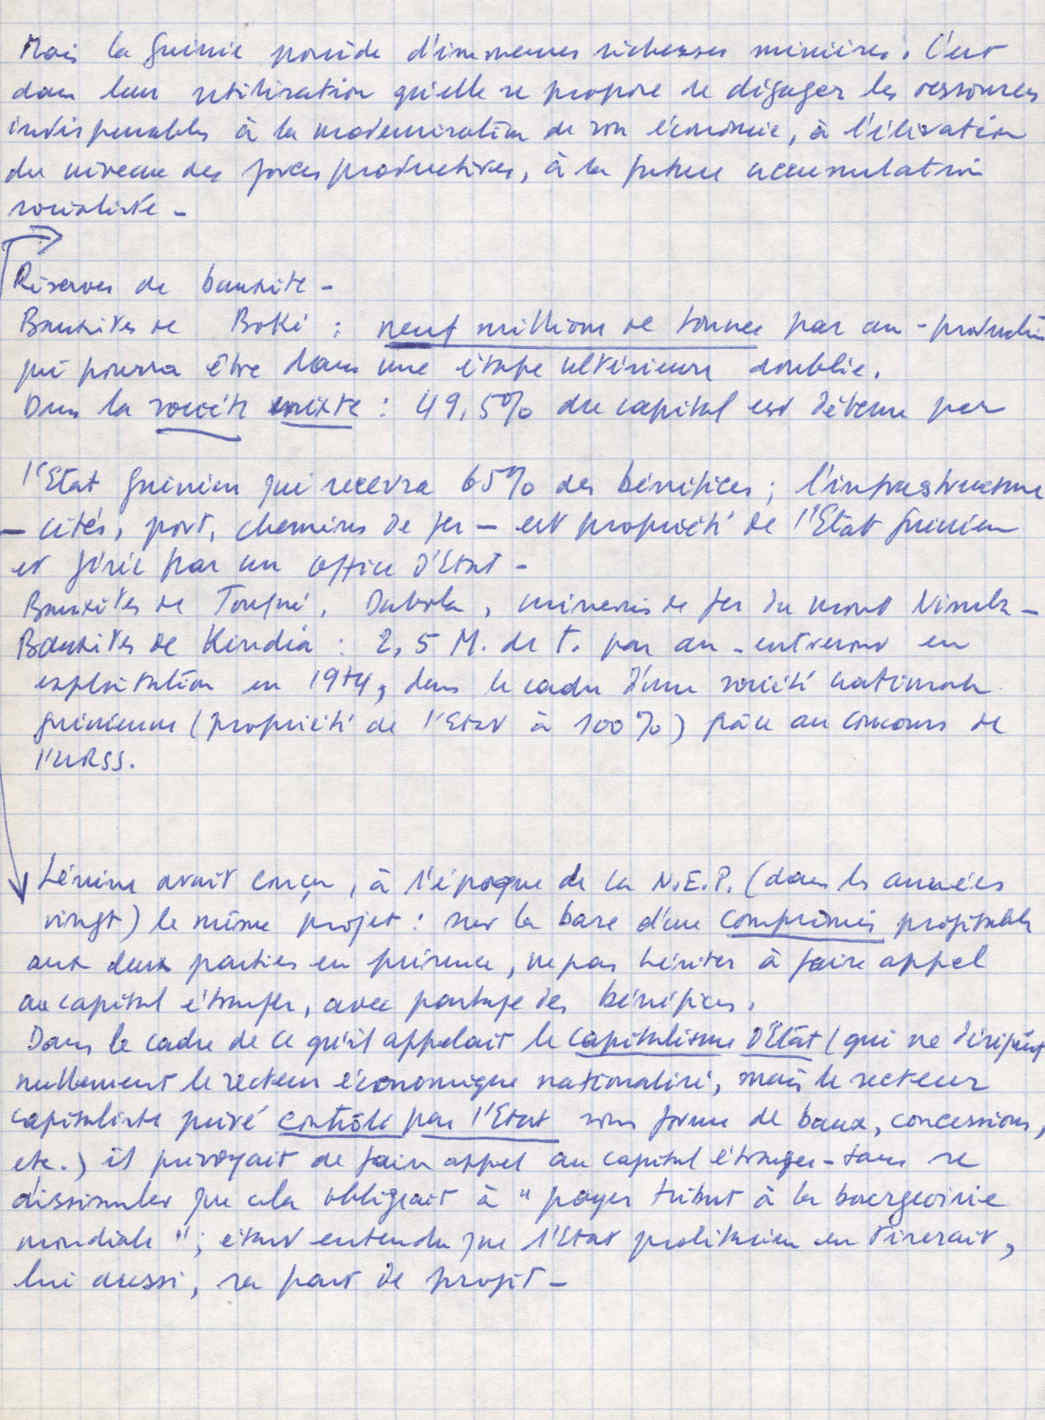 Mais la Guinée possède d'immenses richesses minières. C'est
dans leur utilisation qu'elle se propose de dégager les ressources
indispensables à la modernisation de son économie, à l'élévation
du niveau des forces productives, à la future accumulation
socialiste -
Réserves de bauxite -
Bauxites de Boké : neuf millions de tonnes par an - production
qui pourra être dans une étape ultérieure doublée.
Dans la société mixte : 49,5% du capital est détenu par
l'Etat guinéen qui recevra 65% des bénéfices ; l'infrastructure
- cités, port, chemins de fer - est propriété de l'Etat guinéen
et gérée par un office d'Etat -
Bauxites de Tougué, Dabola, minerais de fer du mont Nimba -
Bauxites de Kindia : 2,5 M. de T. par an - entreront en
exploitation en 1974, dans le cadre d'une société nationale
guinéenne (propriété de l'Etat à 100%) grâce au concours de
l'URSS.
Lénine avait conçu, à l'époque de la N.E.P. (dans les années
vingt) le même projet : sur la base d'un compromis profitable
aux deux parties en présence, ne pas hésiter à faire appel
au capital étranger, avec partage des bénéfices.
Dans le cadre de ce qu'il appelait le capitalisme d'Etat (qui ne désignait
nullement le secteur économique nationalisé, mais le secteur
capitaliste privé contrôlé par l'Etat sous forme de baux, concessions,
etc.) il prévoyait de faire appel au capital étranger - sans se
dissimuler que cela obligeait à "payer tribut à la bourgeoisie
mondiale" ; étant entendu que l'Etat prolétarien en tirerait,
lui aussi, sa part de profit -